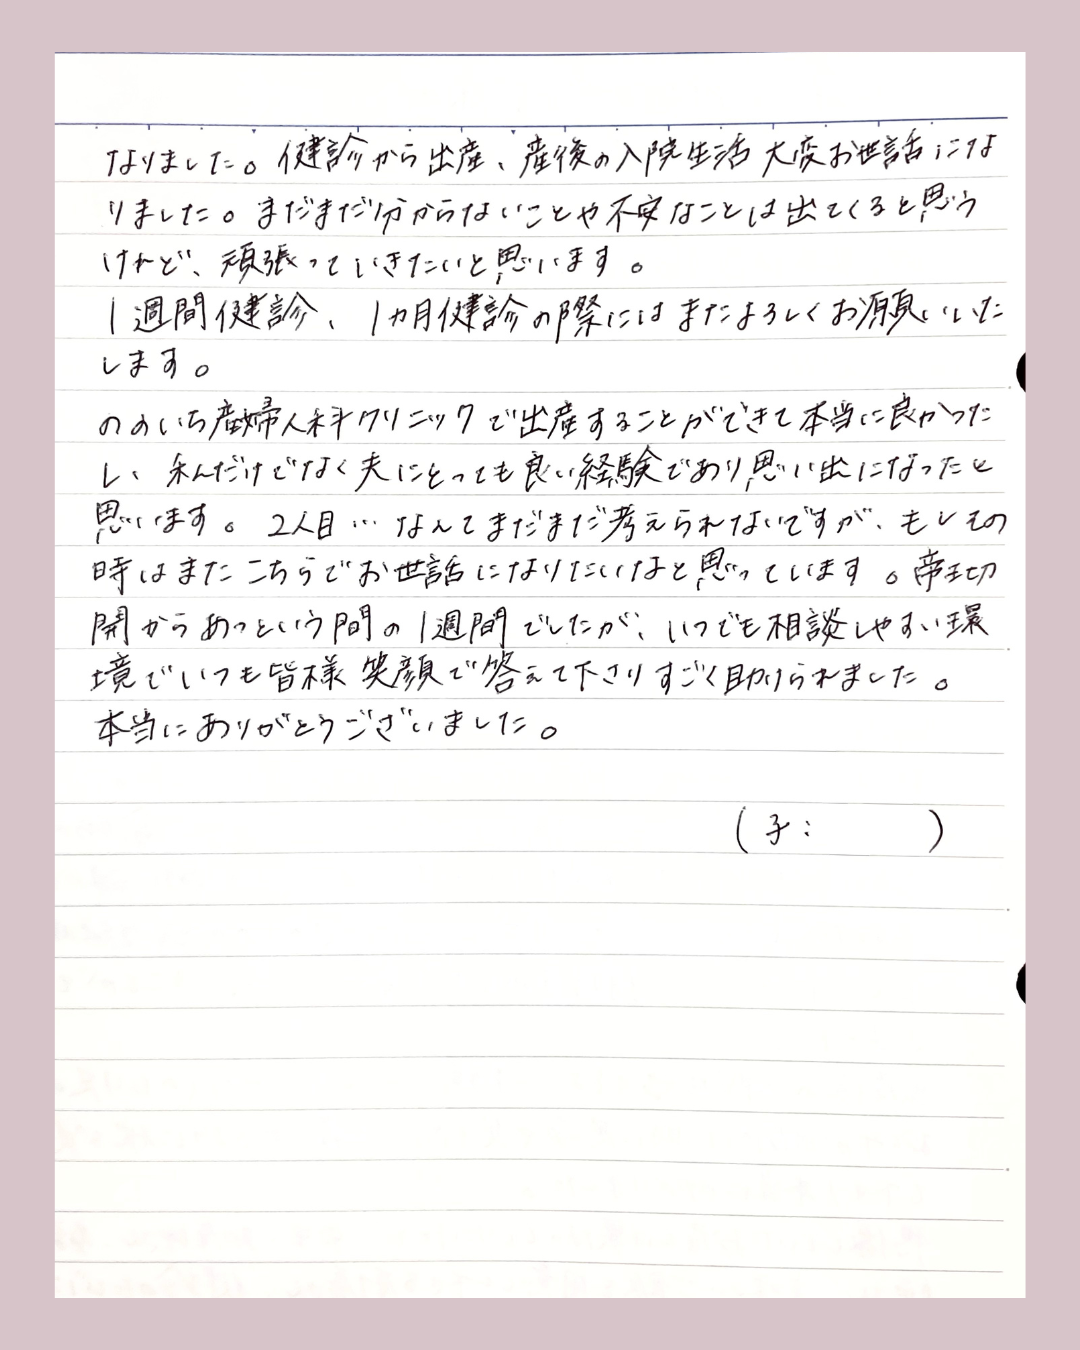 なりました。健診から出産、産後の入院生活大変お世話にな
りました。まだまだ分からないことや不安なことは出てくると思う
けれど、頑張っていきたいと思います。
1週間健診、1ヵ月健診の際にはまたよろしくお願いいた
します。
ののいち産婦人科クリニックで出産することができて本当に良かった
し、私だけでなく夫にとっても良い経験であり思い出になったと
思います。2人目…なんてまだまだ考えられないですが、もしその
時はまたこちらでお世話になりたいなと思っています。帝王切
開からあっという間の1週間でしたが、いつでも相談しやすい環
境でいつも皆様笑顔で答えて下さりすごく助けられました。
本当にありがとうございました。
(子:　　　)